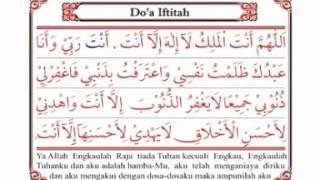 Do'a Iftitah
اَللّٰهُمَّ أَنْتَ الْمَلِكُ لَا إِلٰهَ إِلَّا أَنْتَ . أَنْتَ رَبِّيْ وَأَنَا
عَبْدُكَ ظَلَمْتُ نَفْسِيْ وَاعْتَرَفْتُ بِذَنْبِيْ فَاغْفِرْلِيْ
ذُنُوْبِيْ جَمِيْعًا لَا يَغْفِرُ الذُّنُوْبَ إِلَّا أَنْتَ وَاهْدِنِيْ
لِأَحْسَنِ الْأَخْلَاقِ لَا يَهْدِيْ لِأَحْسَنِهَا إِلَّا أَنْتَ
Ya Allah Engkaulah Raja tiada Tuhan kecuali Engkau, Engkaulah
Tuhanku dan aku adalah hamba-Mu, aku telah menganiaya diriku
dan aku mengakui dengan dosa-dosaku maka ampunilah aku